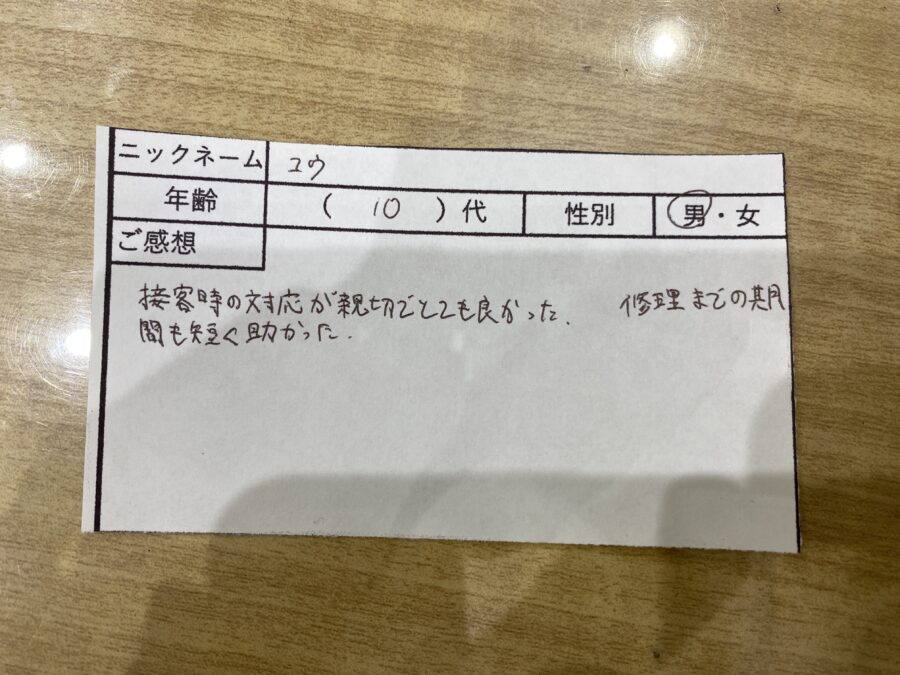 ニックネーム ユウ
年齢 ( 10 ) 代 性別 男・女
ご感想
接客時の対応が親切でとても良かった. 修理までの期
間も短く助かった.